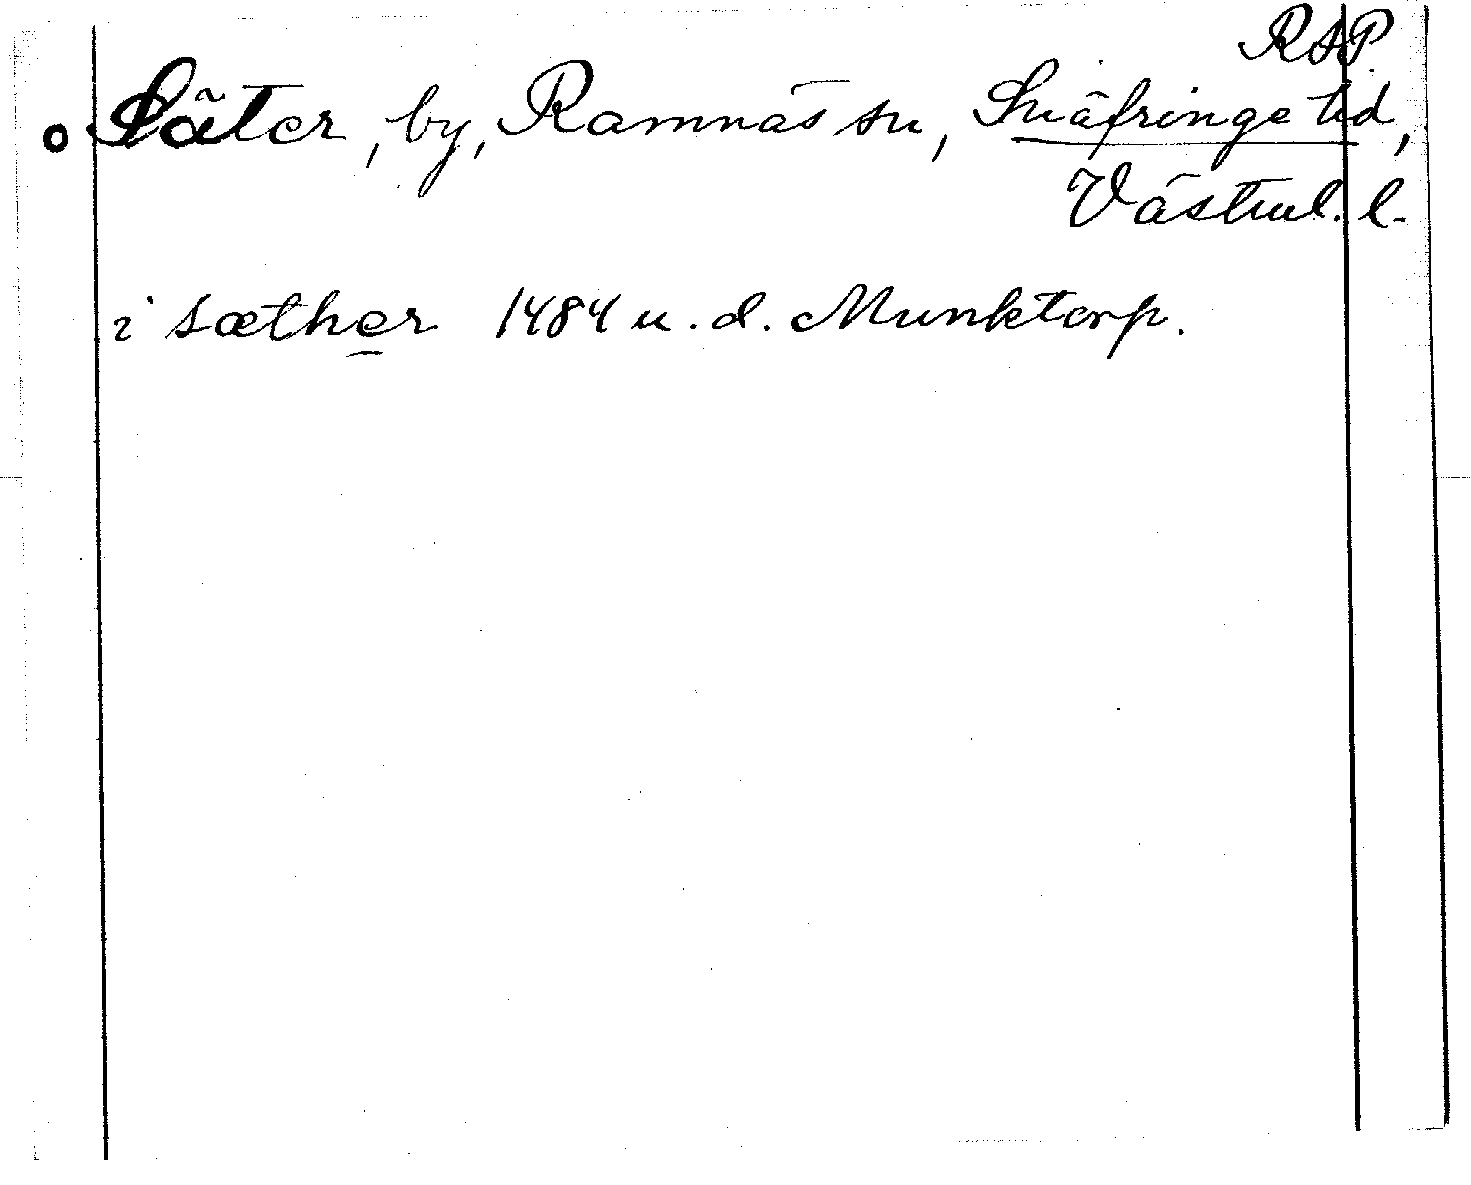 RAP.
Säter, by, Ramnäs sn, Snäfringe hd,
Västml. l.
i sæther 1484 u. d. Munktorp.